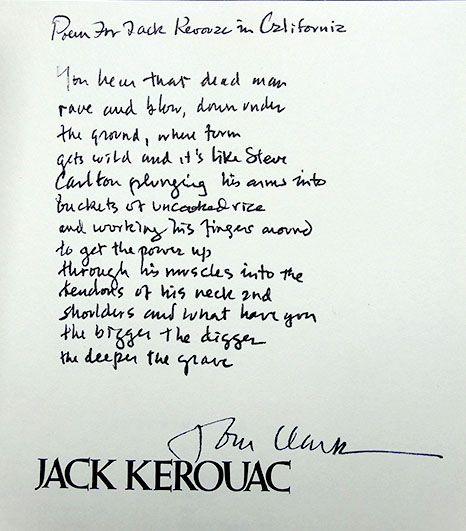 Poem For Jack Kerouac in California
You hear that dead man
rave and blow, down under
the ground, where form
gets wild and it's like Steve
Carlton plunging his arms into
buckets of uncooked rice
and working his fingers around
to get the power up
through his muscles into the
tendons of his neck and
shoulders and what have you
the bigger the digger
the deeper the grave
Tom Clark
JACK KEROUAC